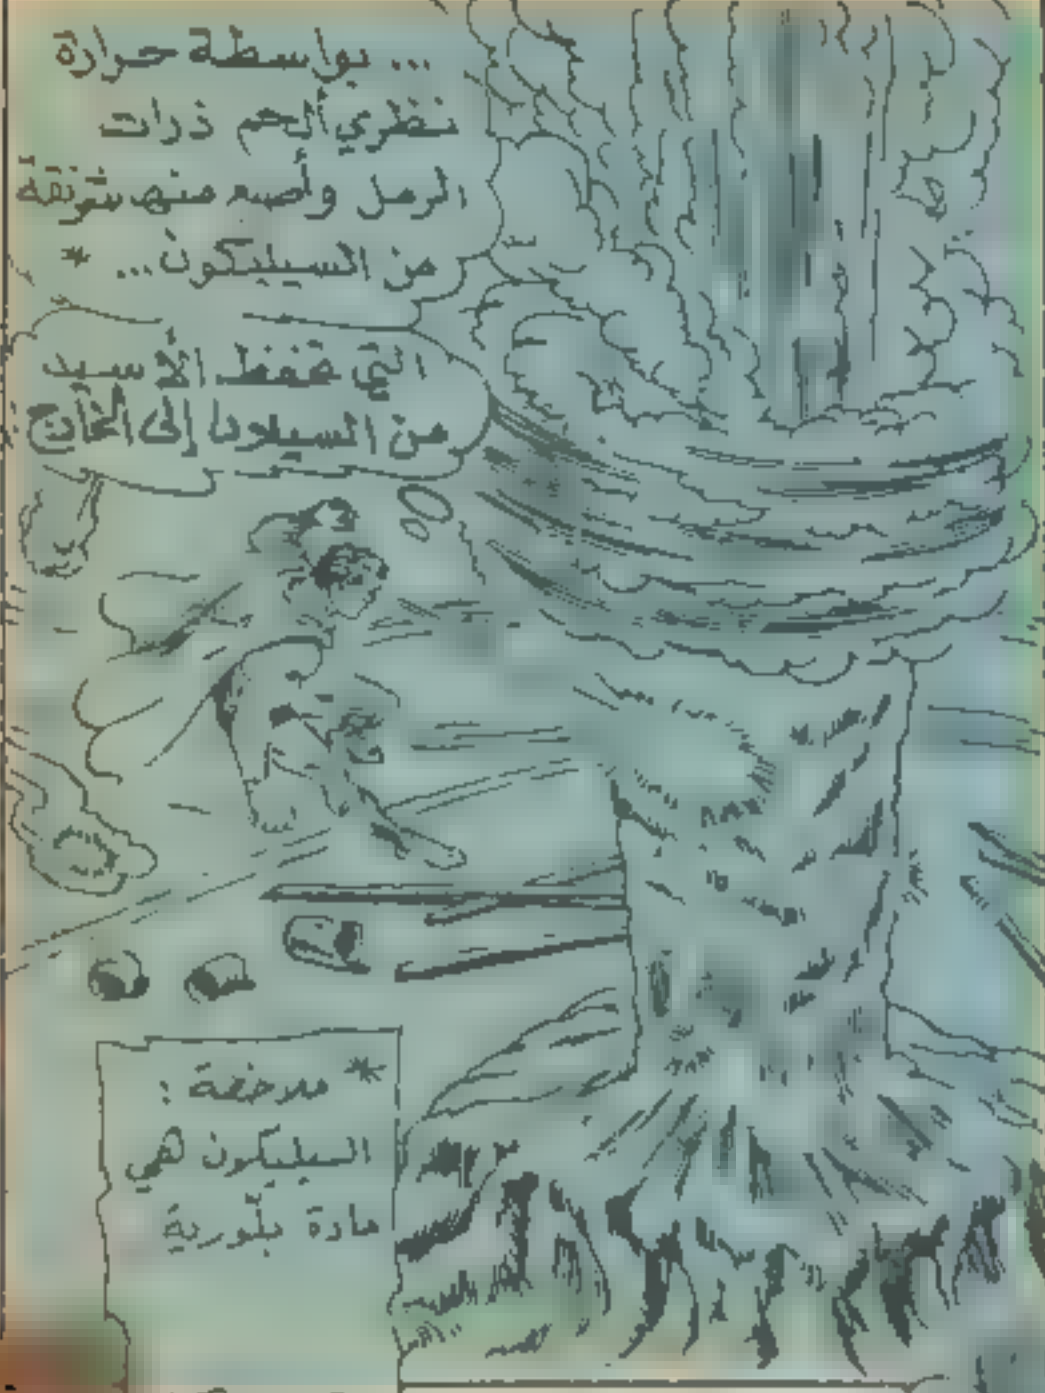 ... بواسطة حرارة
نظري ألحم ذرات
الرمل وأصنع منها شرنقة
من السيليكون ... *
التي ضغط الأسيد
من السيلادنا إلى الخارج
* ملاحظة :
السيليكون هي
مادة بلورية